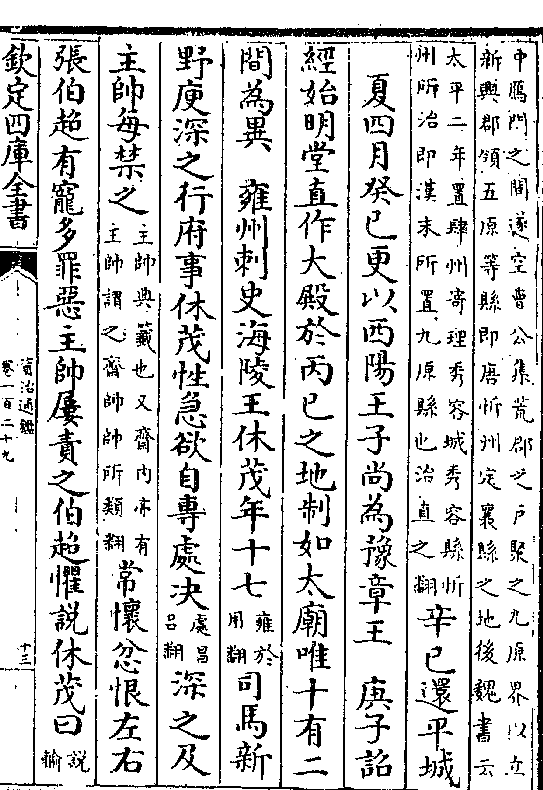 中鴈門之間遂空曹公集荒郡之戶聚之九原界以立
新興郡領五原等縣即唐忻州定襄縣之地後魏書云
太平二年置肆州寄理秀容城秀容縣忻
州所治即漢末所置九原縣也治直之翻
辛巳還平城
夏四月癸巳更以西陽王子尚為豫章王 庚子詔
經始明堂直作大殿於丙巳之地制如太廟唯十有二
間為異 雍州刺史海陵王休茂年十七
雍於
用翻
司馬新
野庾深之行府事休茂性急欲自專處决
處昌
呂翻
深之及
主帥每禁之
主帥典籖也又齋内亦有
主帥謂之齋帥帥所類翻
常懷忿恨左右
張伯超有寵多罪惡主帥屢責之伯超懼説休茂曰
説
輸
欽定四庫全書
資治通鑑
卷一百二十九
十三